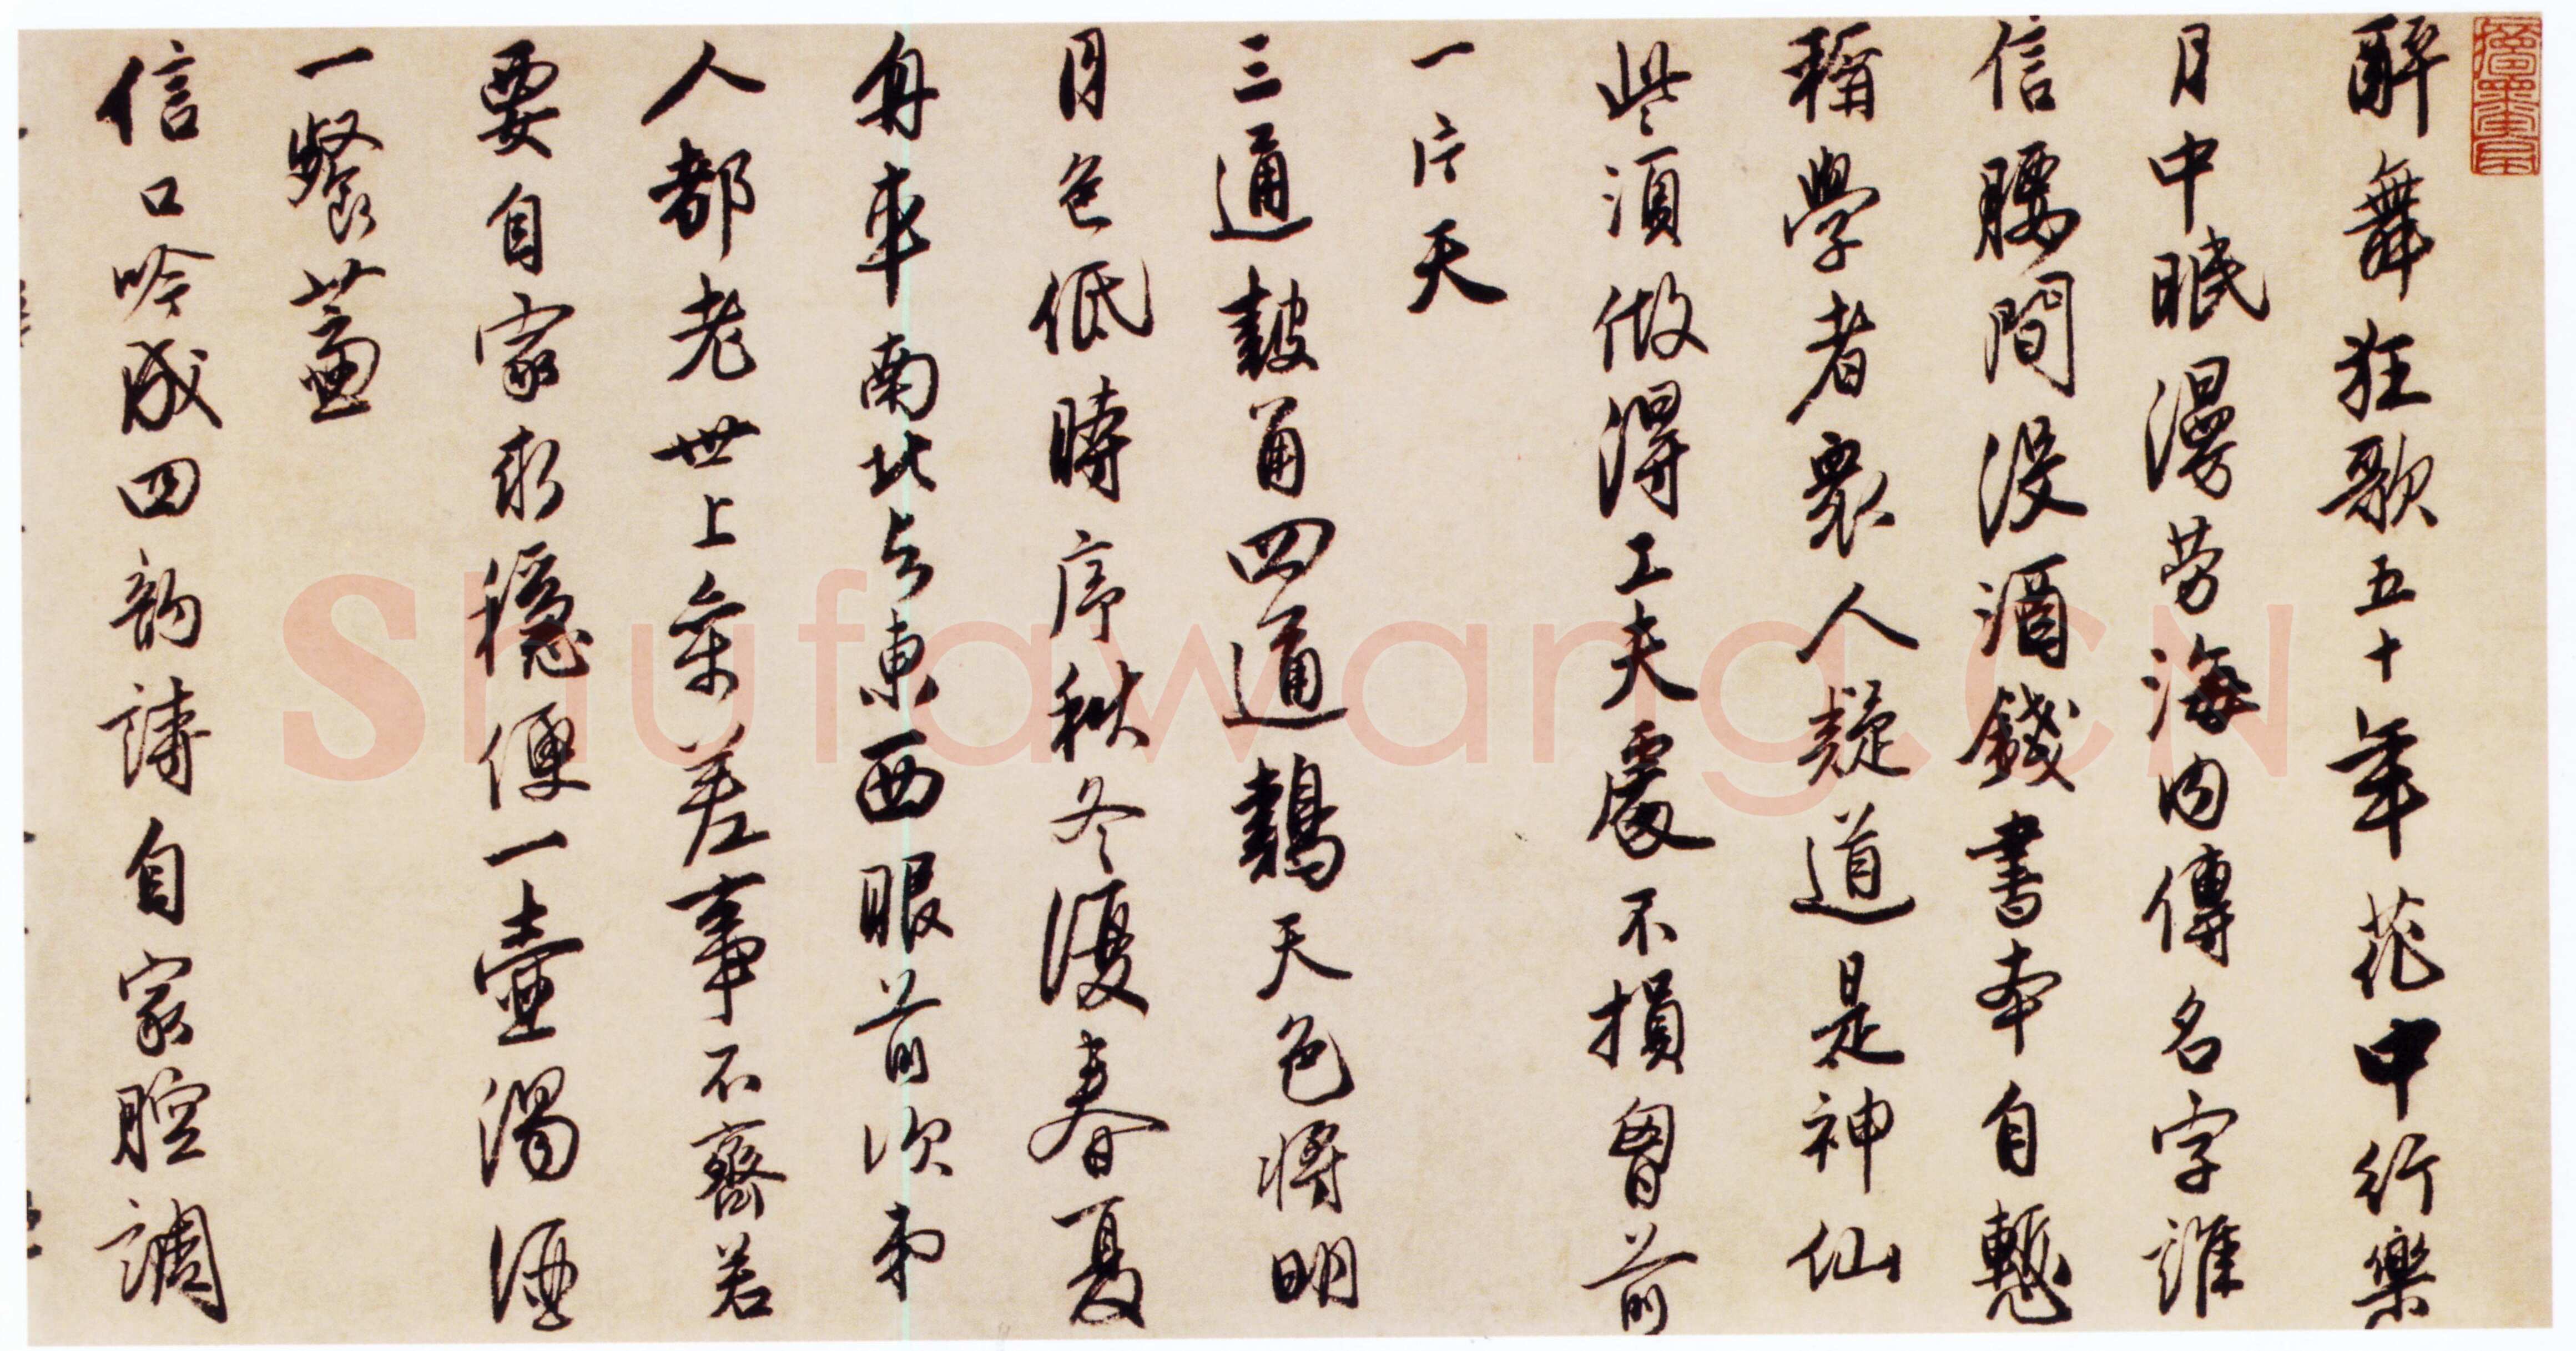 醉舞狂歌五十年花中行樂
月中眠漫勞海内傳名字誰
信腰間没酒錢書本自慙
稱學者衆人疑道是神仙
些須做得工夫處不損胷前
一片天
三通鼓角四通鷄天色將明
月色低時序秋冬復春夏
舟車南北與東西眼前次第
人都老世上參差事不齊若
要自家求穩便一壺濁酒
一餐虀
信口吟成四韵詩自家腔調
Shufawang.CN